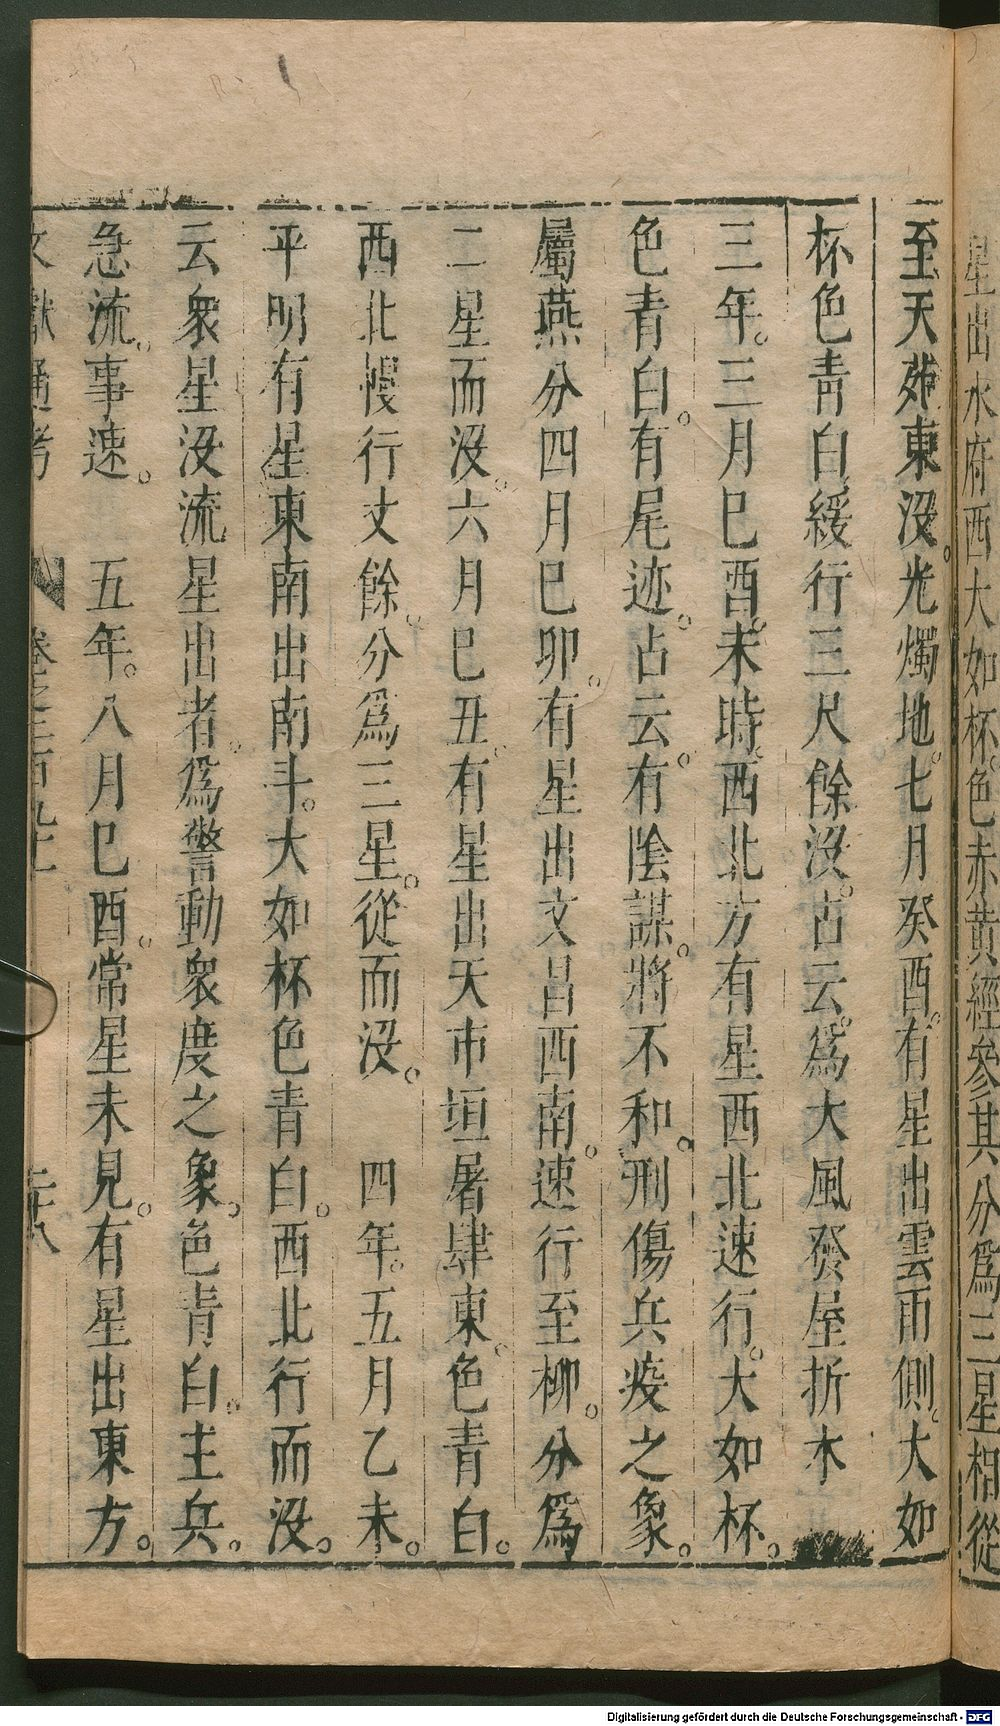 星出水府西大如杯色赤黄經參其分爲三星相從
至天苑東没。光燭地。七月癸酉。有星出雲雨側。大如
杯色青白緩行三尺餘没。占云。爲大風發屋折木
三年。三月巳酉。未時。西北方有星西北速行。大如杯。
色青白。有尾迹。占云。有陰謀。將不和。刑傷兵疫之象。
屬燕分四月巳卯。有星出文昌西南。速行至柳。分爲
二星而没。六月巳丑。有星出天市垣屠肆東。色青白。
西北慢行丈餘。分爲三星。從而没。　四年。五月乙未。
平明有星東南出南斗。大如杯色青白。西北行而没。
云衆星没流星出者。爲警動衆庶之象。色青白。主兵。
急流。事速。　五年。八月巳酉。常星未見。有星出東方。
文獻通考　卷之二百九十　二十八
Digitalisierung gefördert durch die Deutsche Forschungsgemeinschaft - DFG